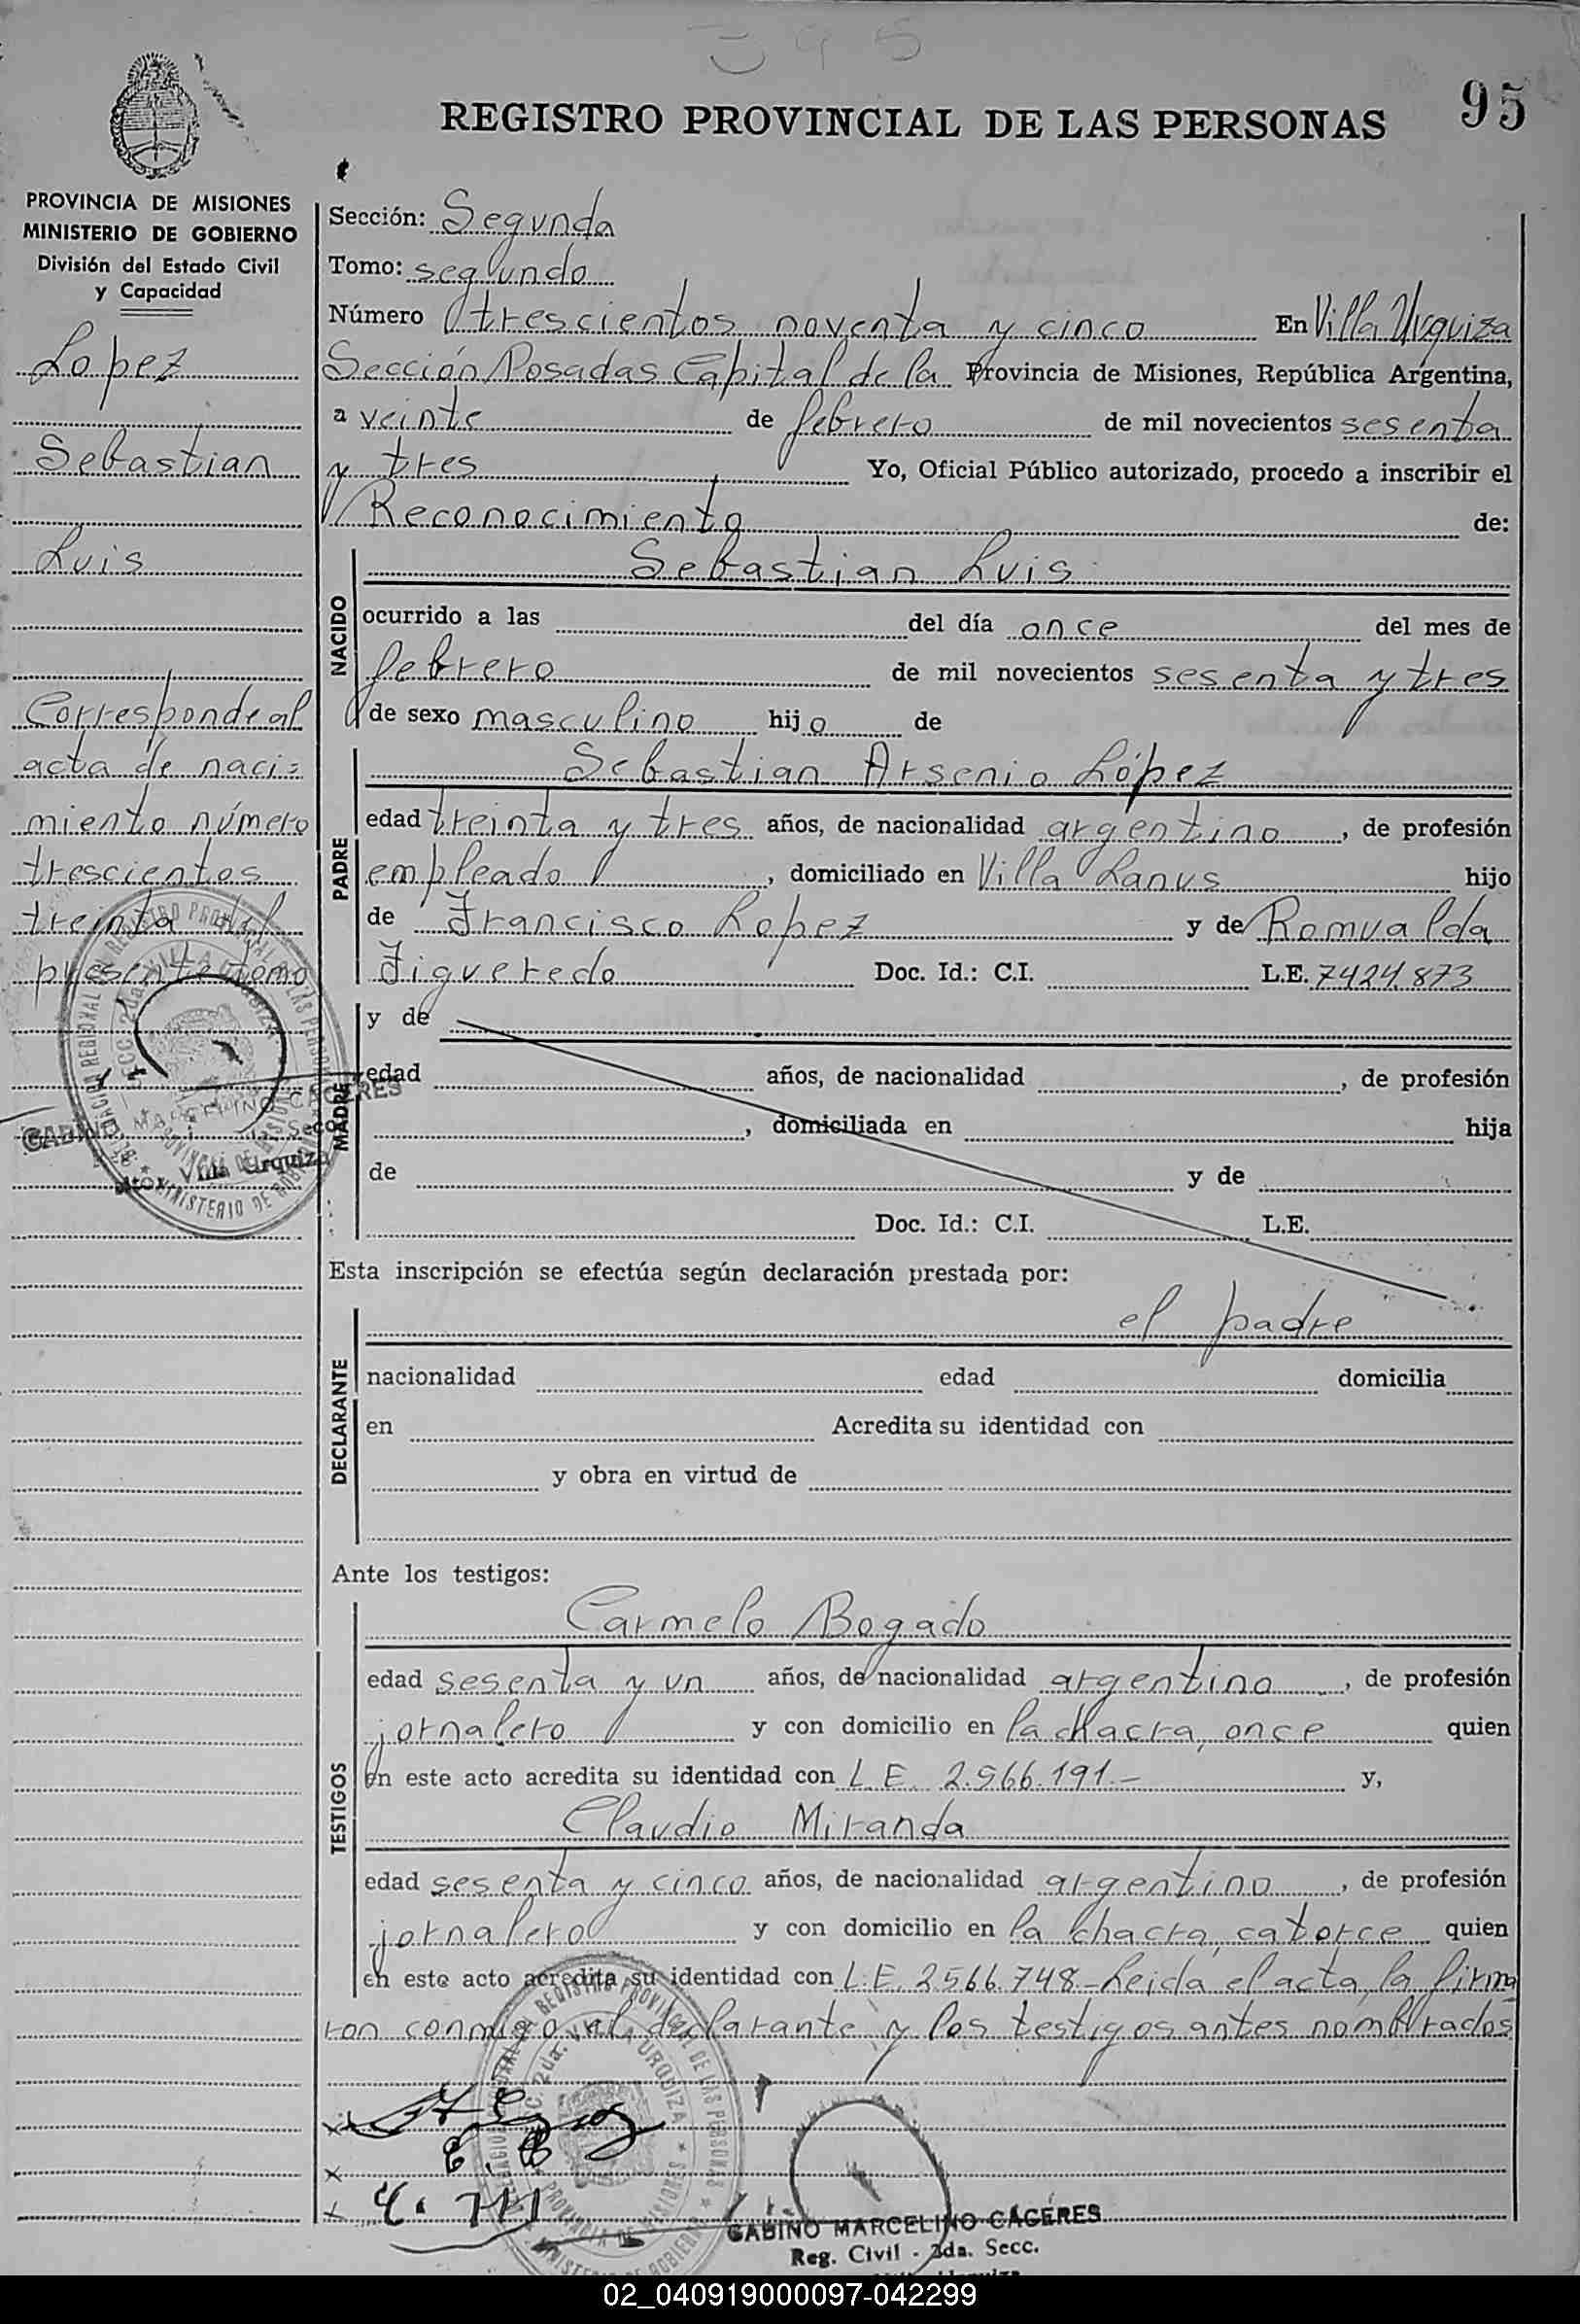 395
95
REGISTRO PROVINCIAL DE LAS PERSONAS
PROVINCIA DE MISIONES
MINISTERIO DE GOBIERNO
División del Estado Civil
y Capacidad
Lopez
Sebastian
Luis
Corresponde al
acta de naci=
miento número
trescientos
treinta del
presente tomo
Sección: Segunda
Tomo: segundo
Número trescientos noventa y cinco En Villa Urquiza
Sección Posadas Capital de la Provincia de Misiones, República Argentina,
a veinte de febrero de mil novecientos sesenta
y tres Yo, Oficial Público autorizado, procedo a inscribir el
Reconocimiento de:
NACIDO
Sebastian Luis
ocurrido a las del día once del mes de
febrero de mil novecientos sesenta y tres
de sexo masculino hijo de
PADRE
Sebastian Arsenio López
edad treinta y tres años, de nacionalidad argentino, de profesión
empleado, domiciliado en Villa Lanus hijo
de Francisco Lopez y de Romualda
Figueredo Doc. Id.: C.I. L.E. 7424.873
MADRE
y de
edad años, de nacionalidad , de profesión
, domiciliada en hija
de y de
Doc. Id.: C.I. L.E.
Esta inscripción se efectúa según declaración prestada por:
DECLARANTE
el padre
nacionalidad edad domicilia
en Acredita su identidad con
y obra en virtud de
Ante los testigos:
TESTIGOS
Carmelo Bogado
edad sesenta y un años, de nacionalidad argentino, de profesión
jornalero y con domicilio en la chacra, once quien
en este acto acredita su identidad con L.E. 2.566.191.- y,
Claudio Miranda
edad sesenta y cinco años, de nacionalidad argentino, de profesión
jornalero y con domicilio en la chacra, catorce quien
en este acto acredita su identidad con L.E. 2566.748.- Leida el acta, la firma
ron conmigo el declarante y los testigos antes nombrados
GABINO MARCELINO CACERES
Reg. Civil - 2da. Secc.
02_040919000097-042299